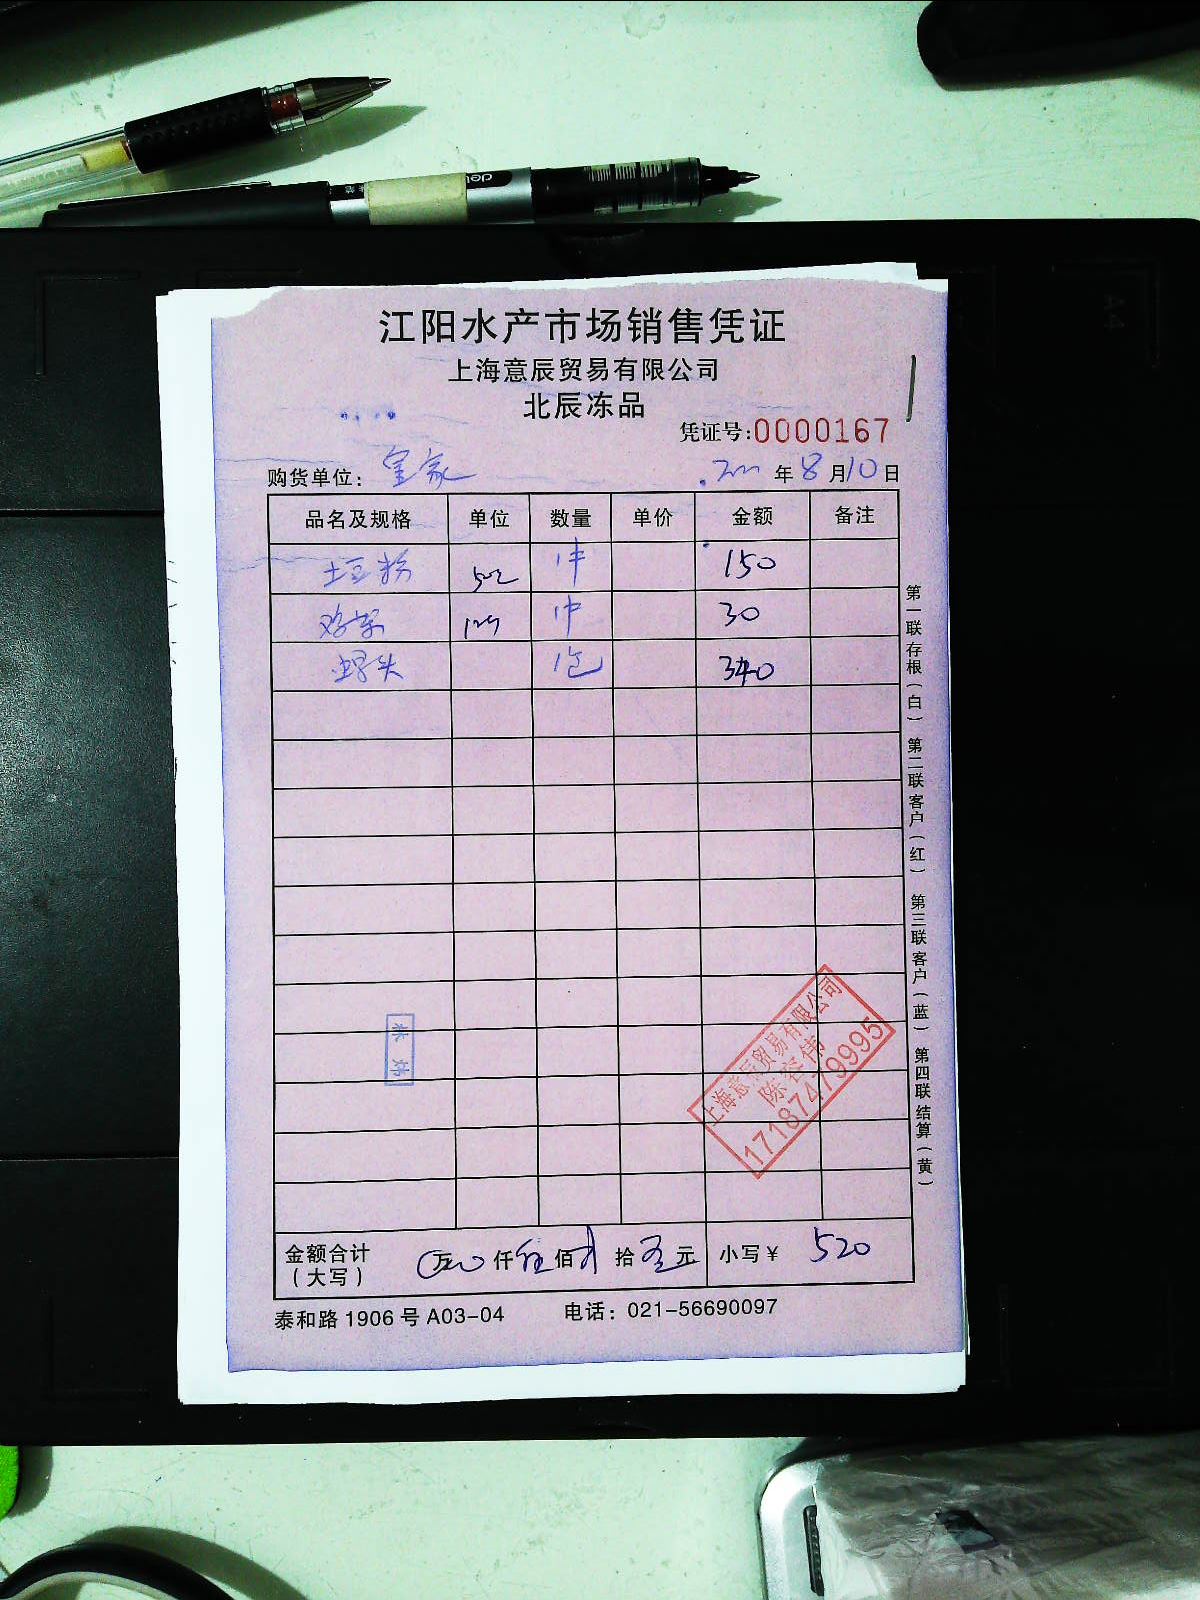 deli
江阳水产市场销售凭证
上海意辰贸易有限公司
北辰冻品
凭证号:0000167
购货单位: 皇家 年 8 月 10 日
品名及规格 单位 数量 单价 金额 备注
土豆粉 1件 150
1件 30
螺头 1包 340
第一联存根(白) 第二联客户(红) 第三联客户(蓝) 第四联结算(黄)
上海意辰贸易有限公司
陈容伟
17187479995
金额合计 万 仟 伍 佰 拾 元 小写¥ 520
(大写)
泰和路1906号A03-04 电话: 021-56690097